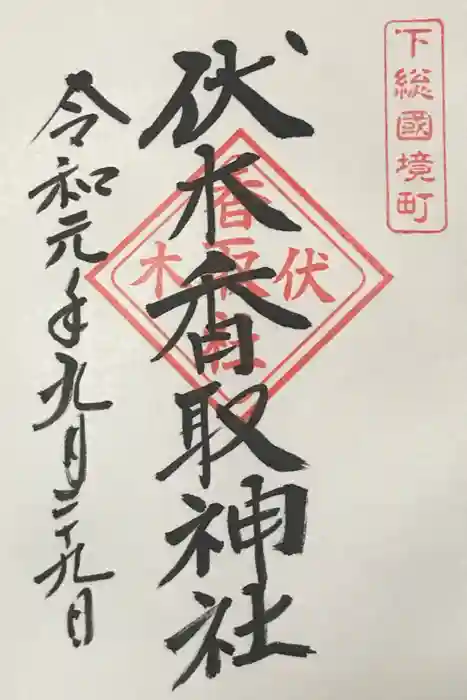 下総國境町
伏木香取神社
香取社
伏木
令和元年九月二十九日